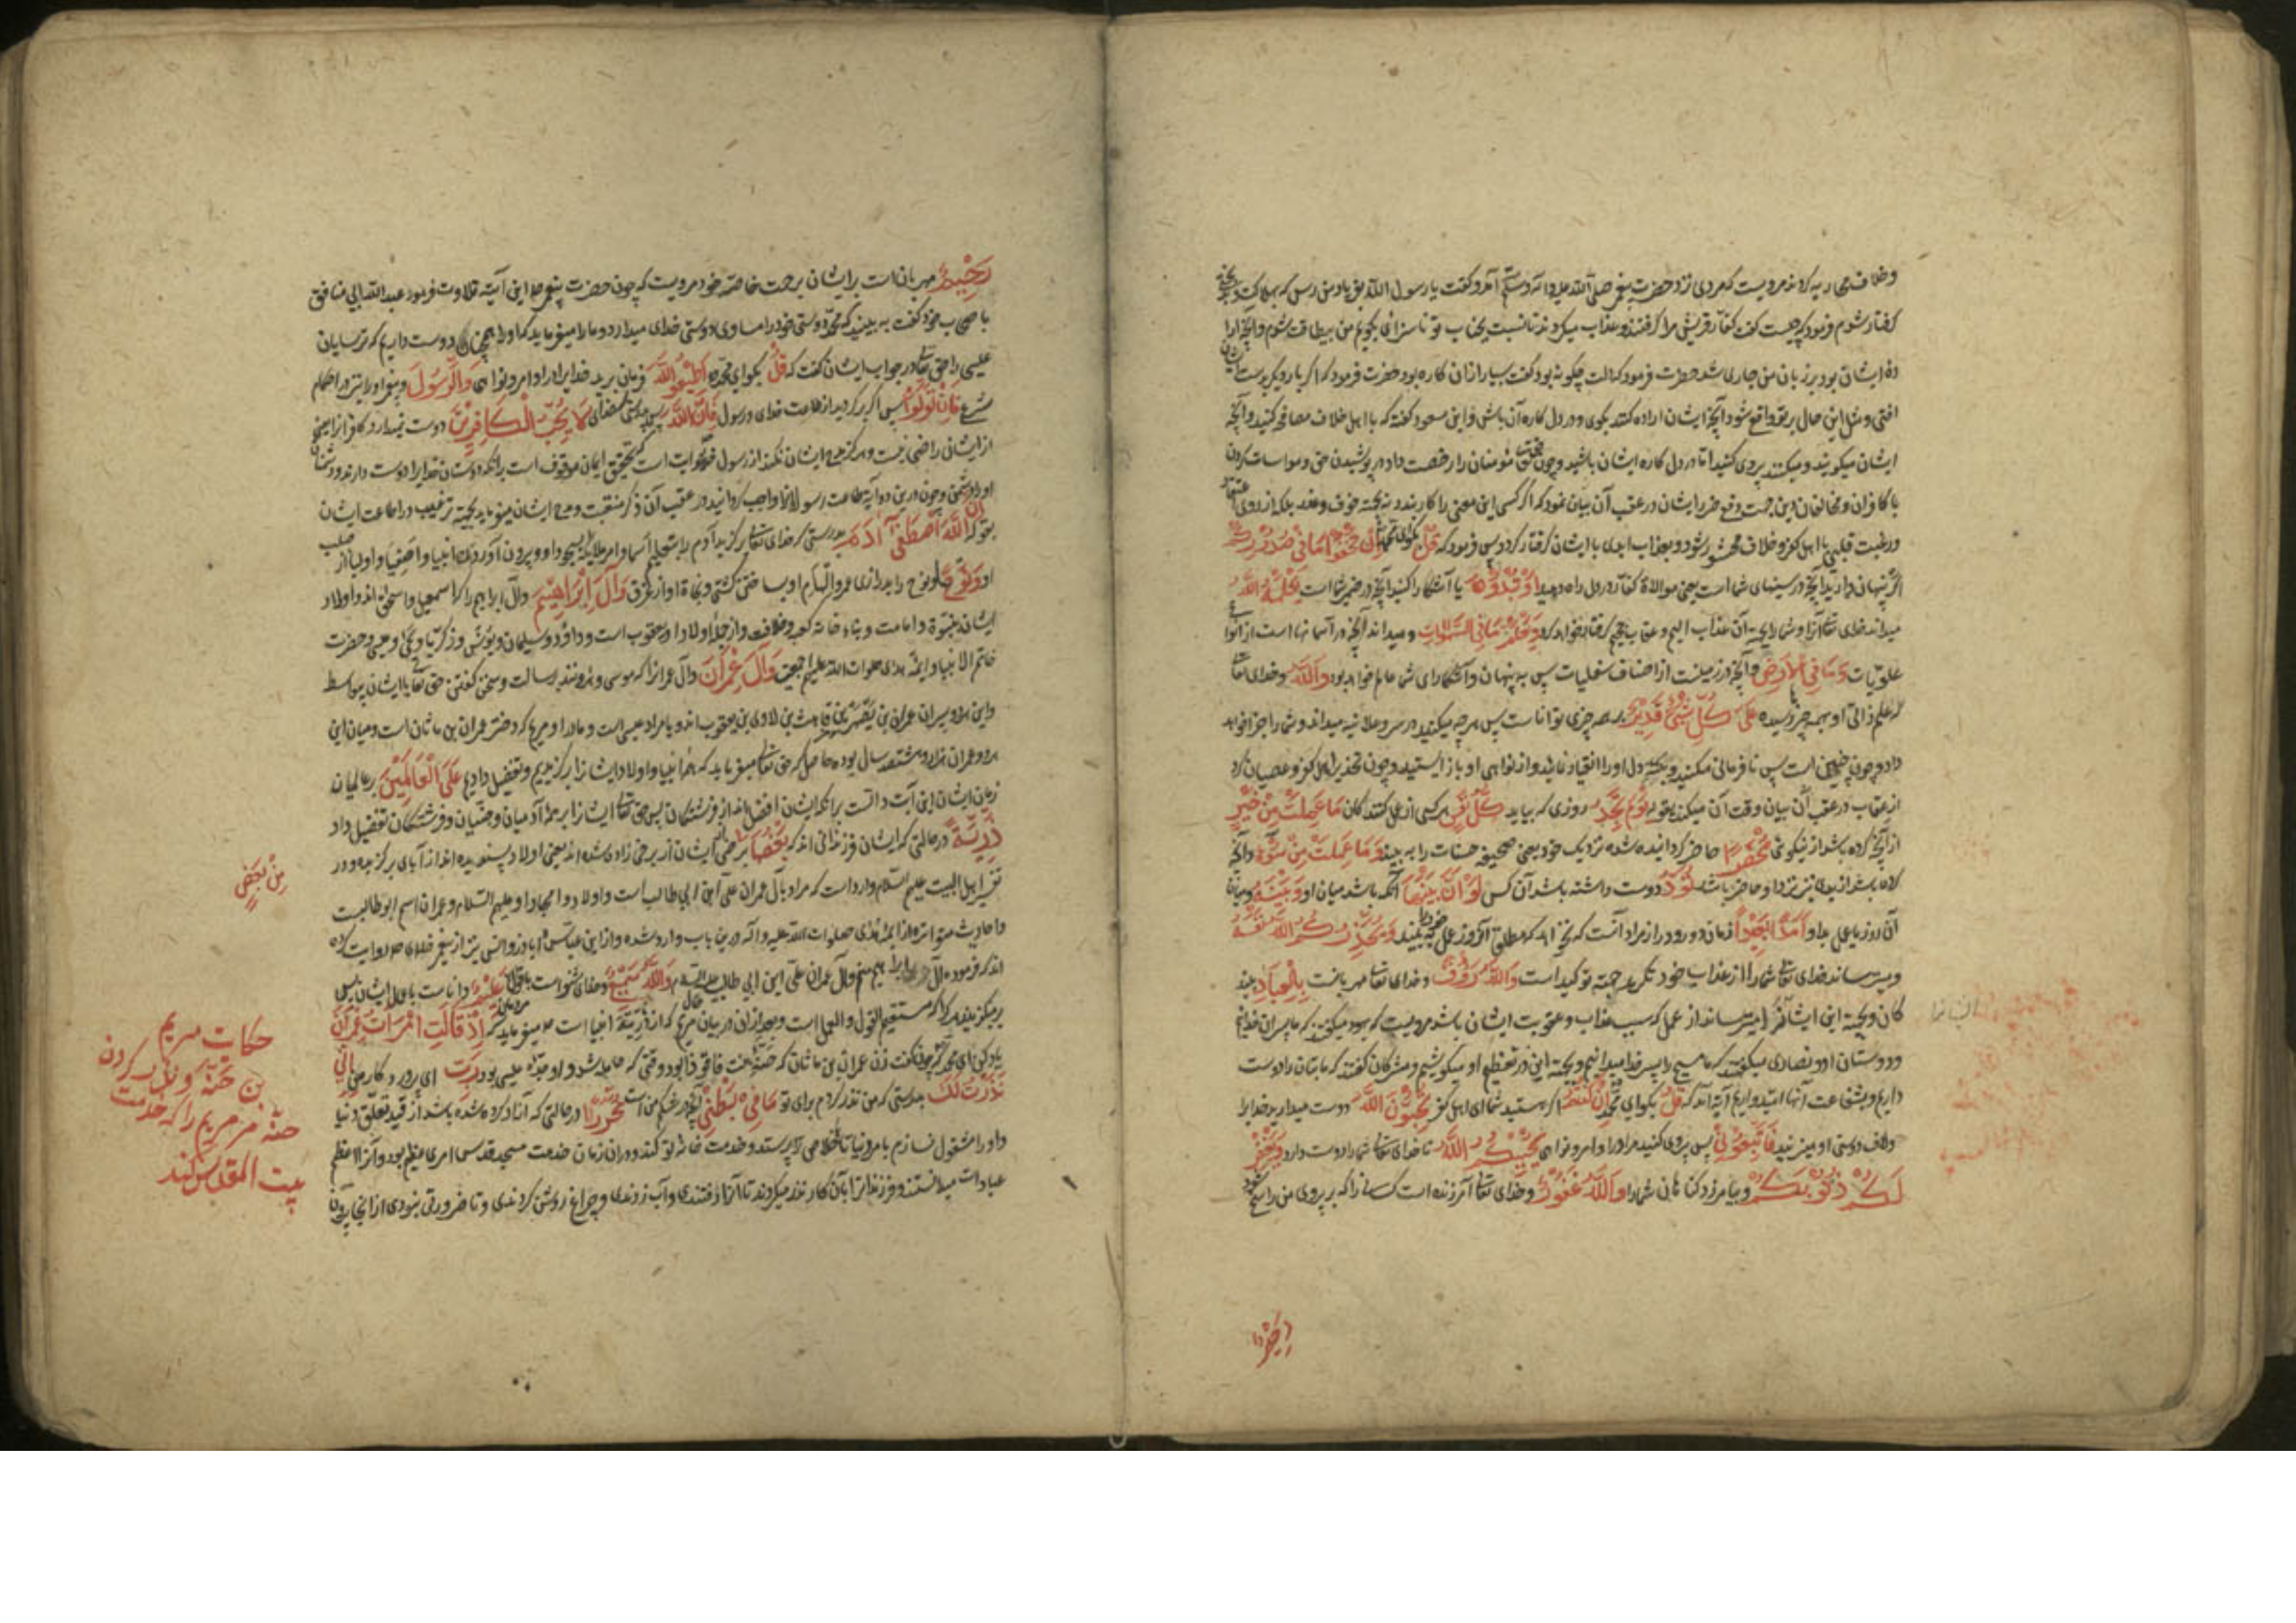 و خلاف محاربه کردند مرویست که مردی نزد حضرت پیغمبر صلی الله علیه و آله و سلم آمد و گفت یا رسول الله
گرفتار شوم فرمود که چیست گفت کفار قریش مرا گرفتند و عذاب میکردند تا نسبت بجناب تو ناسزائی بگویم من بیطاقت شوم و آنچه
ده ایشان بود بر زبان من جاری شد حضرت فرمود که دلت چگونه بود گفت بسیار از آن کاره بود حضرت فرمود که اگر بار دیگر بدست
افتی و مثل این حال بر تو واقع شود آنچه ایشان اراده کنند بگوی و در دل کاره آن باش و ابن مسعود گفته که با اهل خلاف مصافحه کنید و آنچه
ایشان میگویند و میکنند پیروی کنید اما در دل کاره ایشان باشید و چون مؤمنان را رخصت داد در پوشیدن حق و مواسات کردن
با کافران و مخالفان دین جهت دفع ضرر ایشان در عقب آن بیان نمود که اگر کسی این معنی را کار بندد نه بجهة خوف و بلکه از روی
و رغبت قلبی با اهل کفر و خلاف محشور شود و بعذاب ابدی با ایشان گرفتار گردد پس فرمود که قل بگو ای محمد ان تخفوا ما فی صدورکم
اگر پنهان دارید آنچه در سینهای شما است یعنی موالاة کفار در دل راه دهید او تبدوه یا آشکارا کنید آنچه در ضمیر شما است یعلمه الله
میداند خدای تعالی آنرا و شما را بجهت آن عذاب الیم و عقاب گرفتار خواهد کرد و یعلم ما فی السموات و میداند آنچه در آسمانها است از انواع
علویات و ما فی الارض و آنچه در زمینست از اصناف سفلیات پس به پنهان و آشکارای شما عالم خواهد بود و الله و خدای تعالی
که علم ذاتی او بهمه چیز رسیده علی کل شیء قدیر بر همه چیزی تواناست پس هرچه میکنید در سر و علانیه میداند و شما را جزا خواهد
داد و چون چنین است پس نافرمانی مکنید و دل او را انقیاد نمائید و از نواهی او باز ایستید و چون تحذیر اهل کفر و عصیان کرد
از عقاب در عقب آن بیان وقت آن میکند بقوله یوم تجد روزی که بیابد کل نفس هر کسی از عمل کنندگان ما عملت من خیر
از آنچه کرده باشد از نیکوئی محضرا حاضر گردانیده شده نزدیک خود یعنی صحیفه حسنات را به بیند و ما عملت من سوء و آنچه
کرده باشد از بدی نیز نزد او حاضر باشد تود دوست داشته باشد آن کس لو ان بینها آنکه باشد میان او و بینه و میان
آن روز یا عمل بد او امدا بعیدا زمان دور و دراز مراد آنست که نخواهد که مطلق آنروز و عمل خود را به بیند و یحذرکم الله نفسه
و میترساند خدای تعالی شما را از عذاب خود تکریر جهة توکید است و الله رؤف و خدای تعالی مهربانست بالعباد به بند
گان و بجهة این ایشانرا میترساند از عمل که سبب عذاب و عقوبت ایشان باشد مرویست که یهود میگفتند که ما پسران خدائیم
و دوستان او و نصاری میگفتند که ما مسیح را پسر خدا میدانیم و بجهة این در تعظیم او میکوشیم و مشرکان گفتند که ما بتان را دوست
داریم و بشفاعت آنها امیدواریم آیه آمد که قل بگو ای محمد ان کنتم اگر هستید شما ای اهل کفر تحبون الله دوست میدارید خدا را
و لاف دوستی او میزنید فاتبعونی پس پیروی کنید مرا در اوامر و نواهی یحببکم الله تا خدای تعالی شما را دوست دارد و یغفر
لکم ذنوبکم و بیامرزد گناهان شما را و الله غفور و خدای تعالی آمرزنده است کسانی را که پیروی من
رحیم
رحیم مهربان است بر ایشان برحمت خاصه خود مرویست که چون حضرت پیغمبر این آیه تلاوت فرمود عبد الله ابی منافق
باصحاب خود گفت به بینید که محمد دوستی خود را مساوی دوستی خدای میدارد و ما را میفرماید که او را همچنان دوست داریم که ترسایان
عیسی را حق تعالی در جواب ایشان گفت که قل بگو ای محمد اطیعوا الله فرمان برید خدا را در اوامر و نواهی و الرسول و پیغمبر او را نیز در احکام
شرع فان تولوا پس اگر برگردید از طاعت خدای و رسول فان الله پس بدرستی که خدای لا یحب الکافرین دوست نمیدارد کافرانرا یعنی
از ایشان راضی نیست و هرگز مدح ایشان نکند از رسول است که تحقیق ایمان موقوف است برانکه دوستان خدا را دوست دارند و دشمنان
او را دشمن و چون درین دو آیه طاعت رسولانرا واجب گردانید در عقب آن ذکر منقبت و مدح ایشان میفرماید بجهة ترغیب در اطاعت ایشان
بقوله ان الله اصطفی آدم بدرستی که خدای تعالی برگزید آدم را بتعلیم اسما و امر ملائکه بسجود او و بیرون آوردن انبیا و اصفیا و اولیا از صلب
او و نوحا و نوح را بدرازی عمر و اسلام او بساختن کشتی و نجاة او از غرق و آل ابراهیم و آل ابراهیم را که اسمعیل و اسحق اند و اولاد
ایشان بنبوة و امامت و بناء خانه کعبه و خلافت و از جمله اولاد او یعقوب است و داود و سلیمان و یونس و زکریا و یحیی و عیسی و حضرت
خاتم الانبیا و ائمه هدی صلوات الله علیهم اجمعین و آل عمران و آل عمرانرا که موسی و هرونند برسالت و سخن گفتن حق تعالی با ایشان بیواسطه
و این هردو پسران عمران بن یصهر بن قاهث بن لاوی بن یعقوب اند و یا مراد عیسی است و مادر او مریم که دختر عمران بن ماثان است و میان این
هردو عمران هزار و هشتصد سال بوده حاصل که حق تعالی میفرماید که ما انبیا و اولاد ایشانرا برگزیدیم و تفضیل دادیم علی العالمین بر عالمیان
زمان ایشان این آیت دالست برانکه ایشان افضل اند از فرشتگان پس حق تعالی ایشانرا بر همه آدمیان و جنیان و فرشتگان تفضیل داد
ذریة در حالتی که ایشان فرزندانی اند که بعضها برخی ایشان از برخی زاده شده اند یعنی اولاد پسندیده اند از آبای برگزیده و در
من بعض
تفسیر اهل البیت علیهم السلام وارد است که مراد بآل عمران علی ابن ابی طالب است و اولاد امجاد او علیهم السلام و عمران اسم ابوطالبست
و احادیث متواتره از ائمه هدی صلوات الله علیه و آله درین باب وارد شده و از ابن عباس و اباذر و انس نیز از پیغمبر خدای روایت کرده
اند که فرموده آل ابراهیم منم و آل عمران علی ابن ابی طالب علیه السلام و الله سمیع و خدای شنوا است علیم داناست باعمال ایشان پس
برمیگزیند هر که را که مستقیم القول و العمل است و بعد از آن در بیان حال مریم که از ذریة انبیا است میفرماید که اذ قالت امرأت عمران
یاد کن ای محمد چون گفت زن عمران بن ماثان که حنه بنت فاقوذا بود وقتی که حامله شد و او جدۀ عیسی بود رب ای پرورد کار من انی
نذرت لک بدرستی که من نذر کردم برای تو ما فی بطنی آنچه در شکم من است محررا در حالتی که آزاد کرده شده باشد از قید تعلق دنیا
و او را مشغول نسازم بامر دنیا تا ترا پرستد و خدمت خانه تو کند و دران زمان خدمت مسجد قدس امری عظیم بود و آنرا اعظم
عبادات میدانستند و فرزندانرا بآن کار نذر میکردند تا آنرا رفتندی و آب زدندی و چراغ روشن کردندی و تا ضرورتی نبودی از آنجا بیرون
حکایت مریم
بن حنه و نذر کردن
حنه مر مریم را که خدمت
بیت المقدس کند